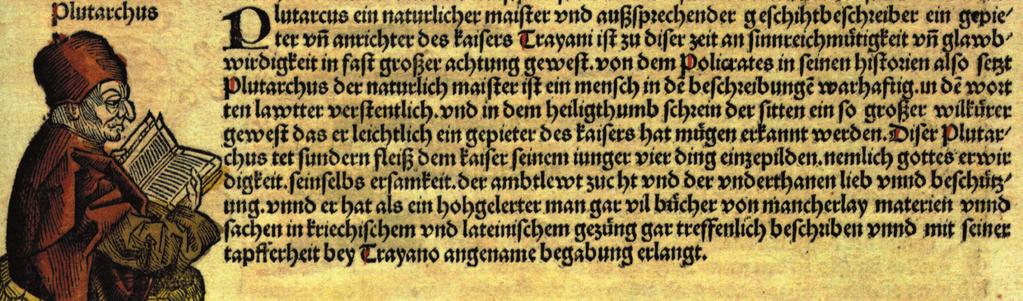 Plutarchus
Plutarcus ein naturlicher maister vnd außsprechender geschihtbeschreiber ein gepie-
ter vñ anrichter des kaisers Trayani ist zu diser zeit an sinnreichmütigkeit vñ glawb-
wirdigkeit in fast großer achtung gewest. von dem Policrates in seinen historien also setzt
Plutarchus der naturlich maister ist ein mensch in dē beschreibungē warhaftig. in dē wort
ten lawtter verstentlich. vnd in dem heiligthumb schrein der sitten ein so großer wilkürer
gewest das er leichtlich ein gepieter des kaisers hat mügen erkannt werden. Diser Plutar-
chus tet sundern fleiß dem kaiser seinem iunger vier ding einzepilden. nemlich gottes erwir
digkeit. seinselbs ersamkeit. der ambtlewt zucht vnd der vnderthanen lieb vnnd beschütz-
ung. vnnd er hat als ein hohgelerter man gar vil bücher von mancherlay materien vnnd
sachen in kriechischem vnd lateinischem gezüng gar treffenlich beschriben vnnd mit seiner
tapfferheit bey Trayano angename begabung erlangt.